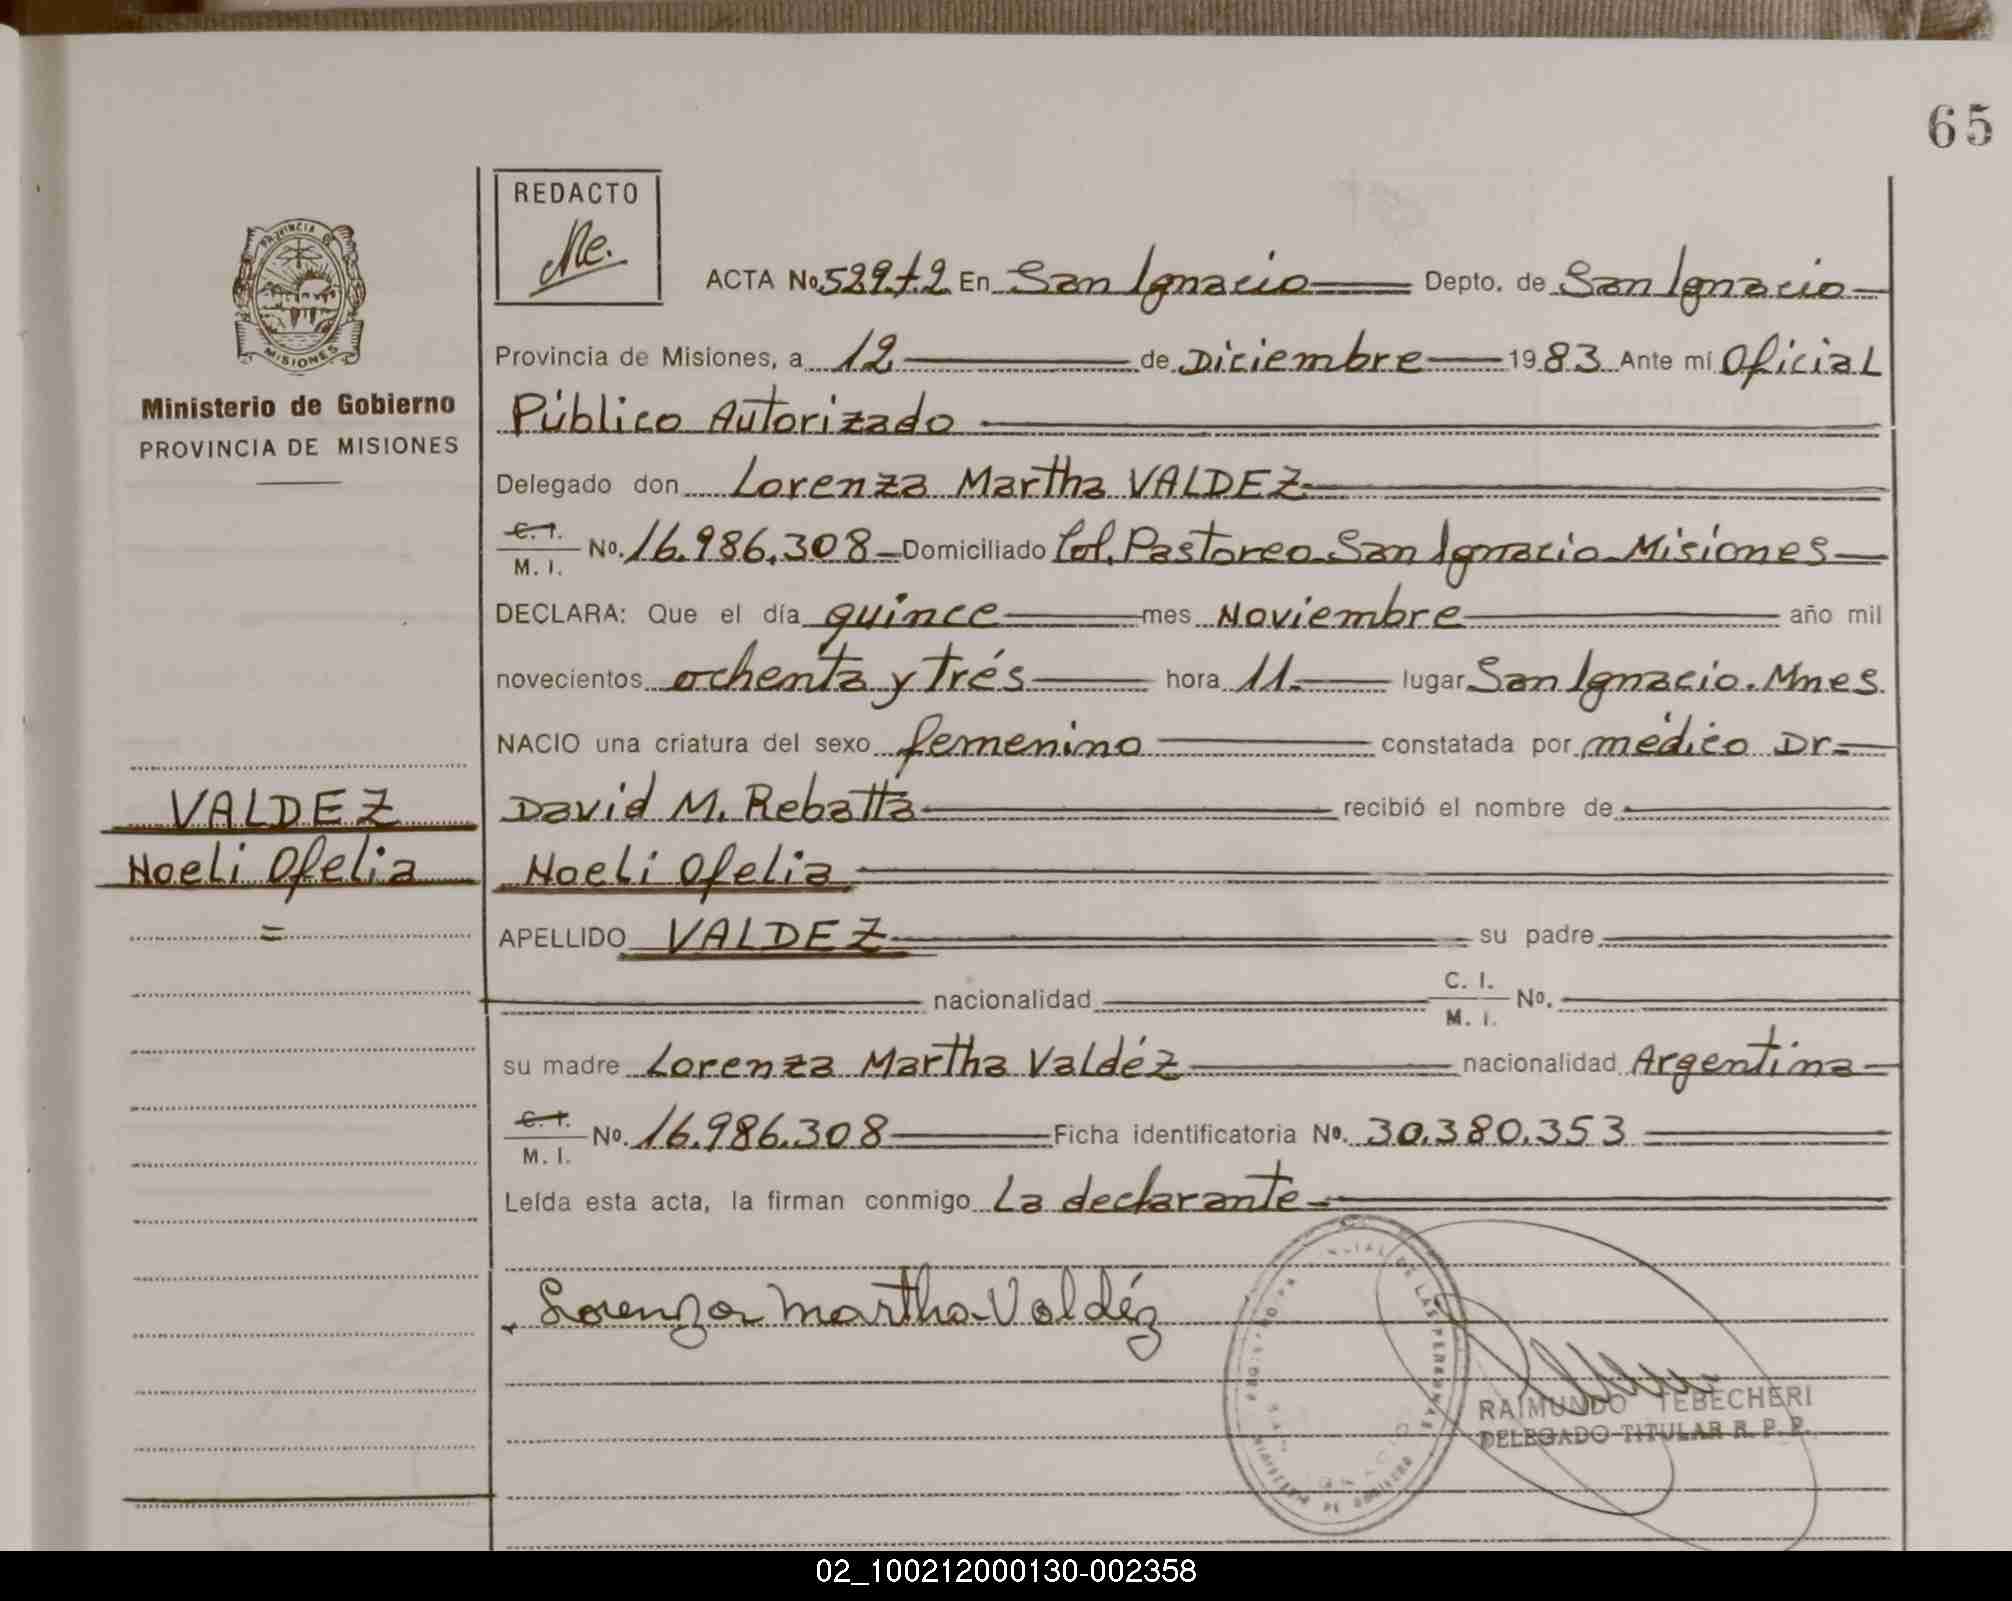 65
REDACTO
Me.
PROVINCIA DE
MISIONES
Ministerio de Gobierno
PROVINCIA DE MISIONES
ACTA No. 529.t.2 En San Ignacio Depto. de San Ignacio
Provincia de Misiones, a 12 de Diciembre 1983 Ante mí Oficial
Público Autorizado
Delegado don Lorenza Martha VALDEZ
C. I.
M. I. No. 16.986.308 Domiciliado Col. Pastoreo San Ignacio Misiones
DECLARA: Que el día quince mes Noviembre año mil
novecientos ochenta y trés hora 11. lugar San Ignacio. Mnes.
NACIO una criatura del sexo femenino constatada por médico Dr.
David M. Rebatta recibió el nombre de
Noeli Ofelia
VALDEZ
Noeli Ofelia
=
APELLIDO VALDEZ su padre
nacionalidad C. I.
M. I. No.
su madre Lorenza Martha Valdéz nacionalidad Argentina
C. I.
M. I. No. 16.986.308 Ficha identificatoria No. 30.380.353
Leída esta acta, la firman conmigo La declarante
Lorenza Martha Valdéz
DE LAS PERSONAS
MINISTERIO DE GOBIERNO
RAIMUNDO TEBECHERI
DELEGADO TITULAR R. P. P.
02_100212000130-002358